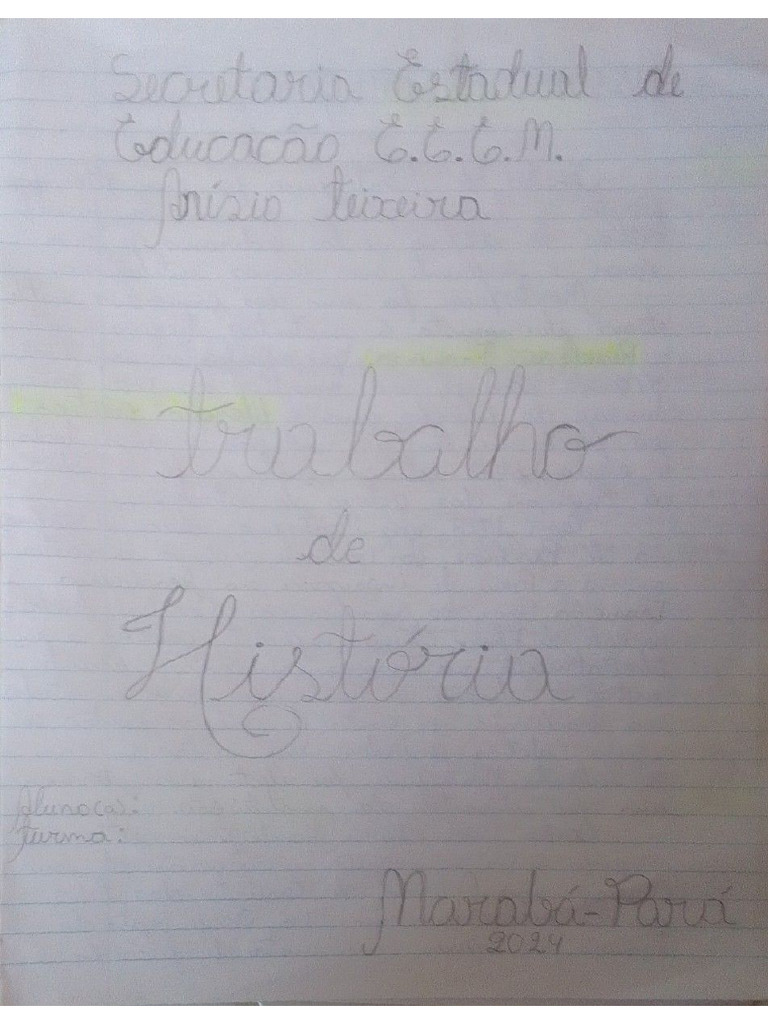 Secretaria Estadual de
Educacão E.E.E.M.
Anízio teixeira
trabalho
de
História
Aluno(a):
turma:
Marabá-Pará
2024